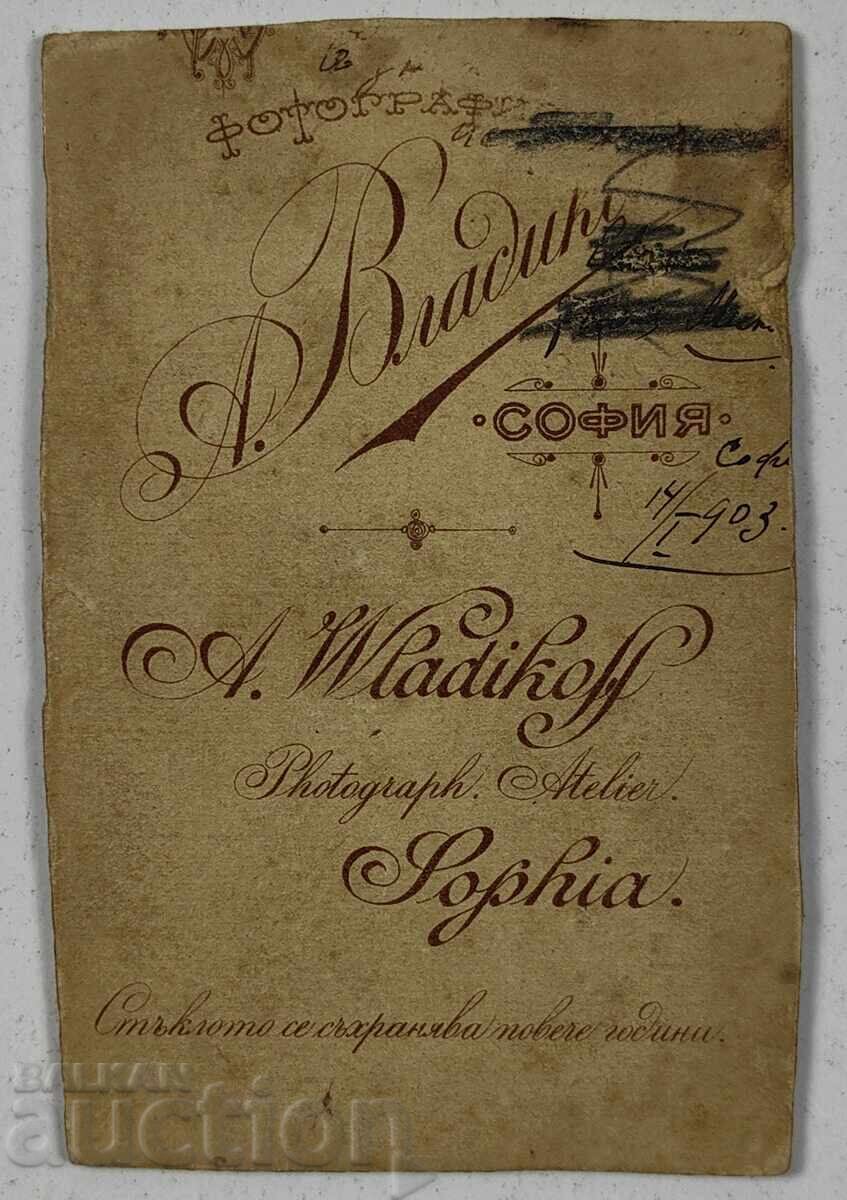 ФОТОГРАФИ
А. Владик
· СОФИЯ ·
Софи
14/I-903.
A. Wladikoff
Photograph. Atelier.
Sophia.
Стъклото се съхранява повече години.
BALKAN
auction